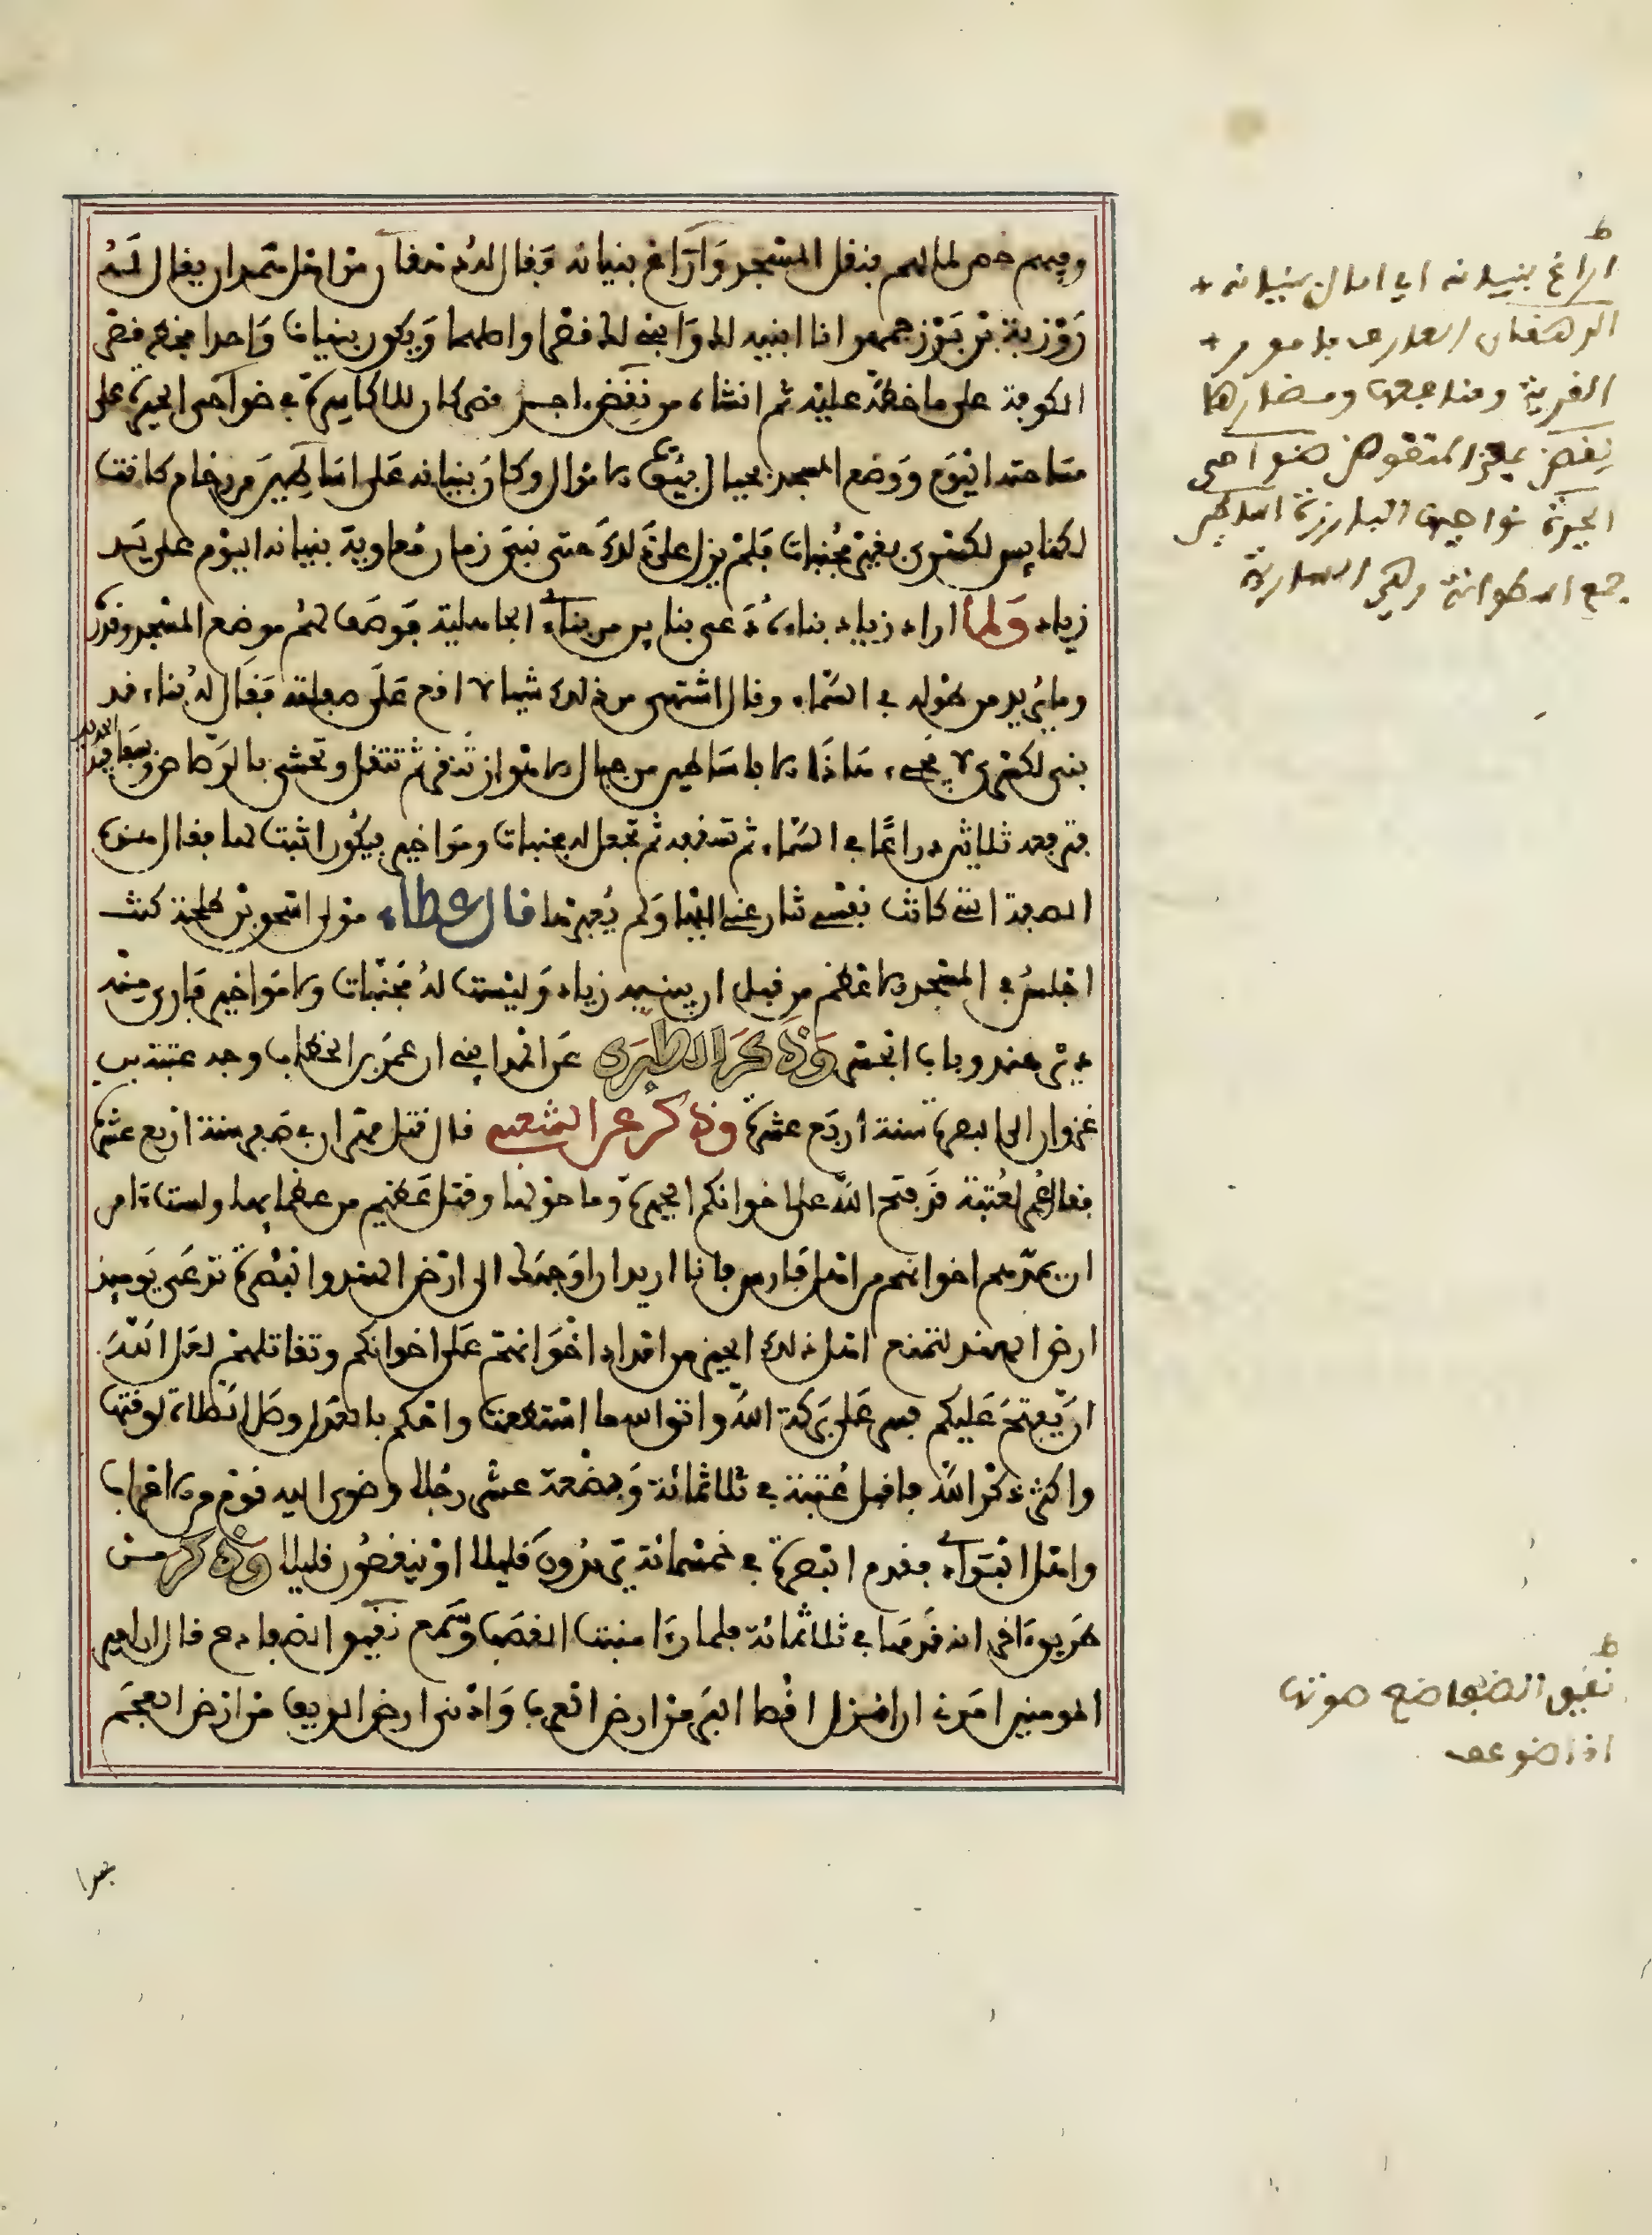 وفيهم حصر لمالهم فنقل المسجد وأراغ بنيانه فقال له دهقان من أهل همدان يقال له
روزبة بن بزرجمهر انا ابنيه لك وابني لك قصرا واصلهما ويكون بنيانا واحدا فخط قصر
الكوفة على ما خط عليه ثم انشاه من نقض اجر قصر كان للاكاسرة في ضواحي الحيرة على
مساحته اليوم ووضع المسجد بحيال بيت الاموال وكان بنيانه على اساطير من رخام كانت
لكنايس لكسرى بغير مجنبات فلم يزل على ذلك حتى بنى زمان معاوية بنيانه اليوم على يد
زياد ولما اراد زياد بناءه دعى بنايين من بناء الجاهلية فوصف لهم موضع المسجد وقدره
وما يريد من طوله في السماء وقال اشتهي من ذلك شيا لا اقع على صفته فقال له بناء قد
بنى لكسرى لا يجيء هذا الا باساطير من جبال الاهواز تنقر ثم تثقل وتحشى بالرصاص وسفافيد الحديد
فترفعه ثلاثين دراعا في السماء ثم تسقفه ثم تجعل له مجنبات ومواخير فيكون اثبت لها فقال هذه
الصفة التي كانت نفسي تنازعني اليها ولم تعبرها قال عطاء مولى اسحق بن طلحة كنت
اجلس في المسجد الاعظم من قبل ان يبنيه زياد وليست له مجنبات ولا مواخير فارى منه
دير هند وباب الجسر وذكر الطبري عن المدايني ان عمر بن الخطاب وجه عتبة بن
غزوان الى البصرة سنة اربع عشرة وذكر عن الشعبي قال قتل مهران في صفر سنة اربع عشرة
فقال عمر لعتبة قد فتح الله على اخوانكم الحيرة وما حولها وقتل عظيم من عظمايها ولست اامن
ان يمدهم اخوانهم من اهل فارس فانا اريد ان اوجهك الى ارض الهند والبصرة تدعى يوميذ
ارض الهند لتمنع اهل ذلك الحيز من امداد اخوانهم على اخوانكم وتقاتلهم لعل الله
ان يفتح عليكم فسر على بركة الله واتق الله ما استطعت واحكم بالعدل وصل الصلاة لوقتها
واكثر ذكر الله فاقبل عتبة في ثلاثمائة وبضعة عشر رجلا وضوى اليه قوم من الاعراب
واهل البوادي فقدم البصرة في خمسمائة يزيدون قليلا او ينقصون قليلا وذكر من
طريق اخر انه قدمها في ثلاثمائة فلما راى منبت القصب وسمع نقيق الضفادع قال ان امير
المومنين امرني ان انزل اقصا البر من ارض العرب وادنى ارض الريف من ارض العجم
فهذا
ط
اراغ بنيانه اي امال بنيانه
الدهقان العارف بامور
القرية ومنافعها ومضارها
نقض بمعنى المنقوض ضواحي
الحيرة نواحيها البارزة اساطير
جمع اسطوانة وهي السارية
ط
نقيق الضفادع صوتها
اذا ضوعف